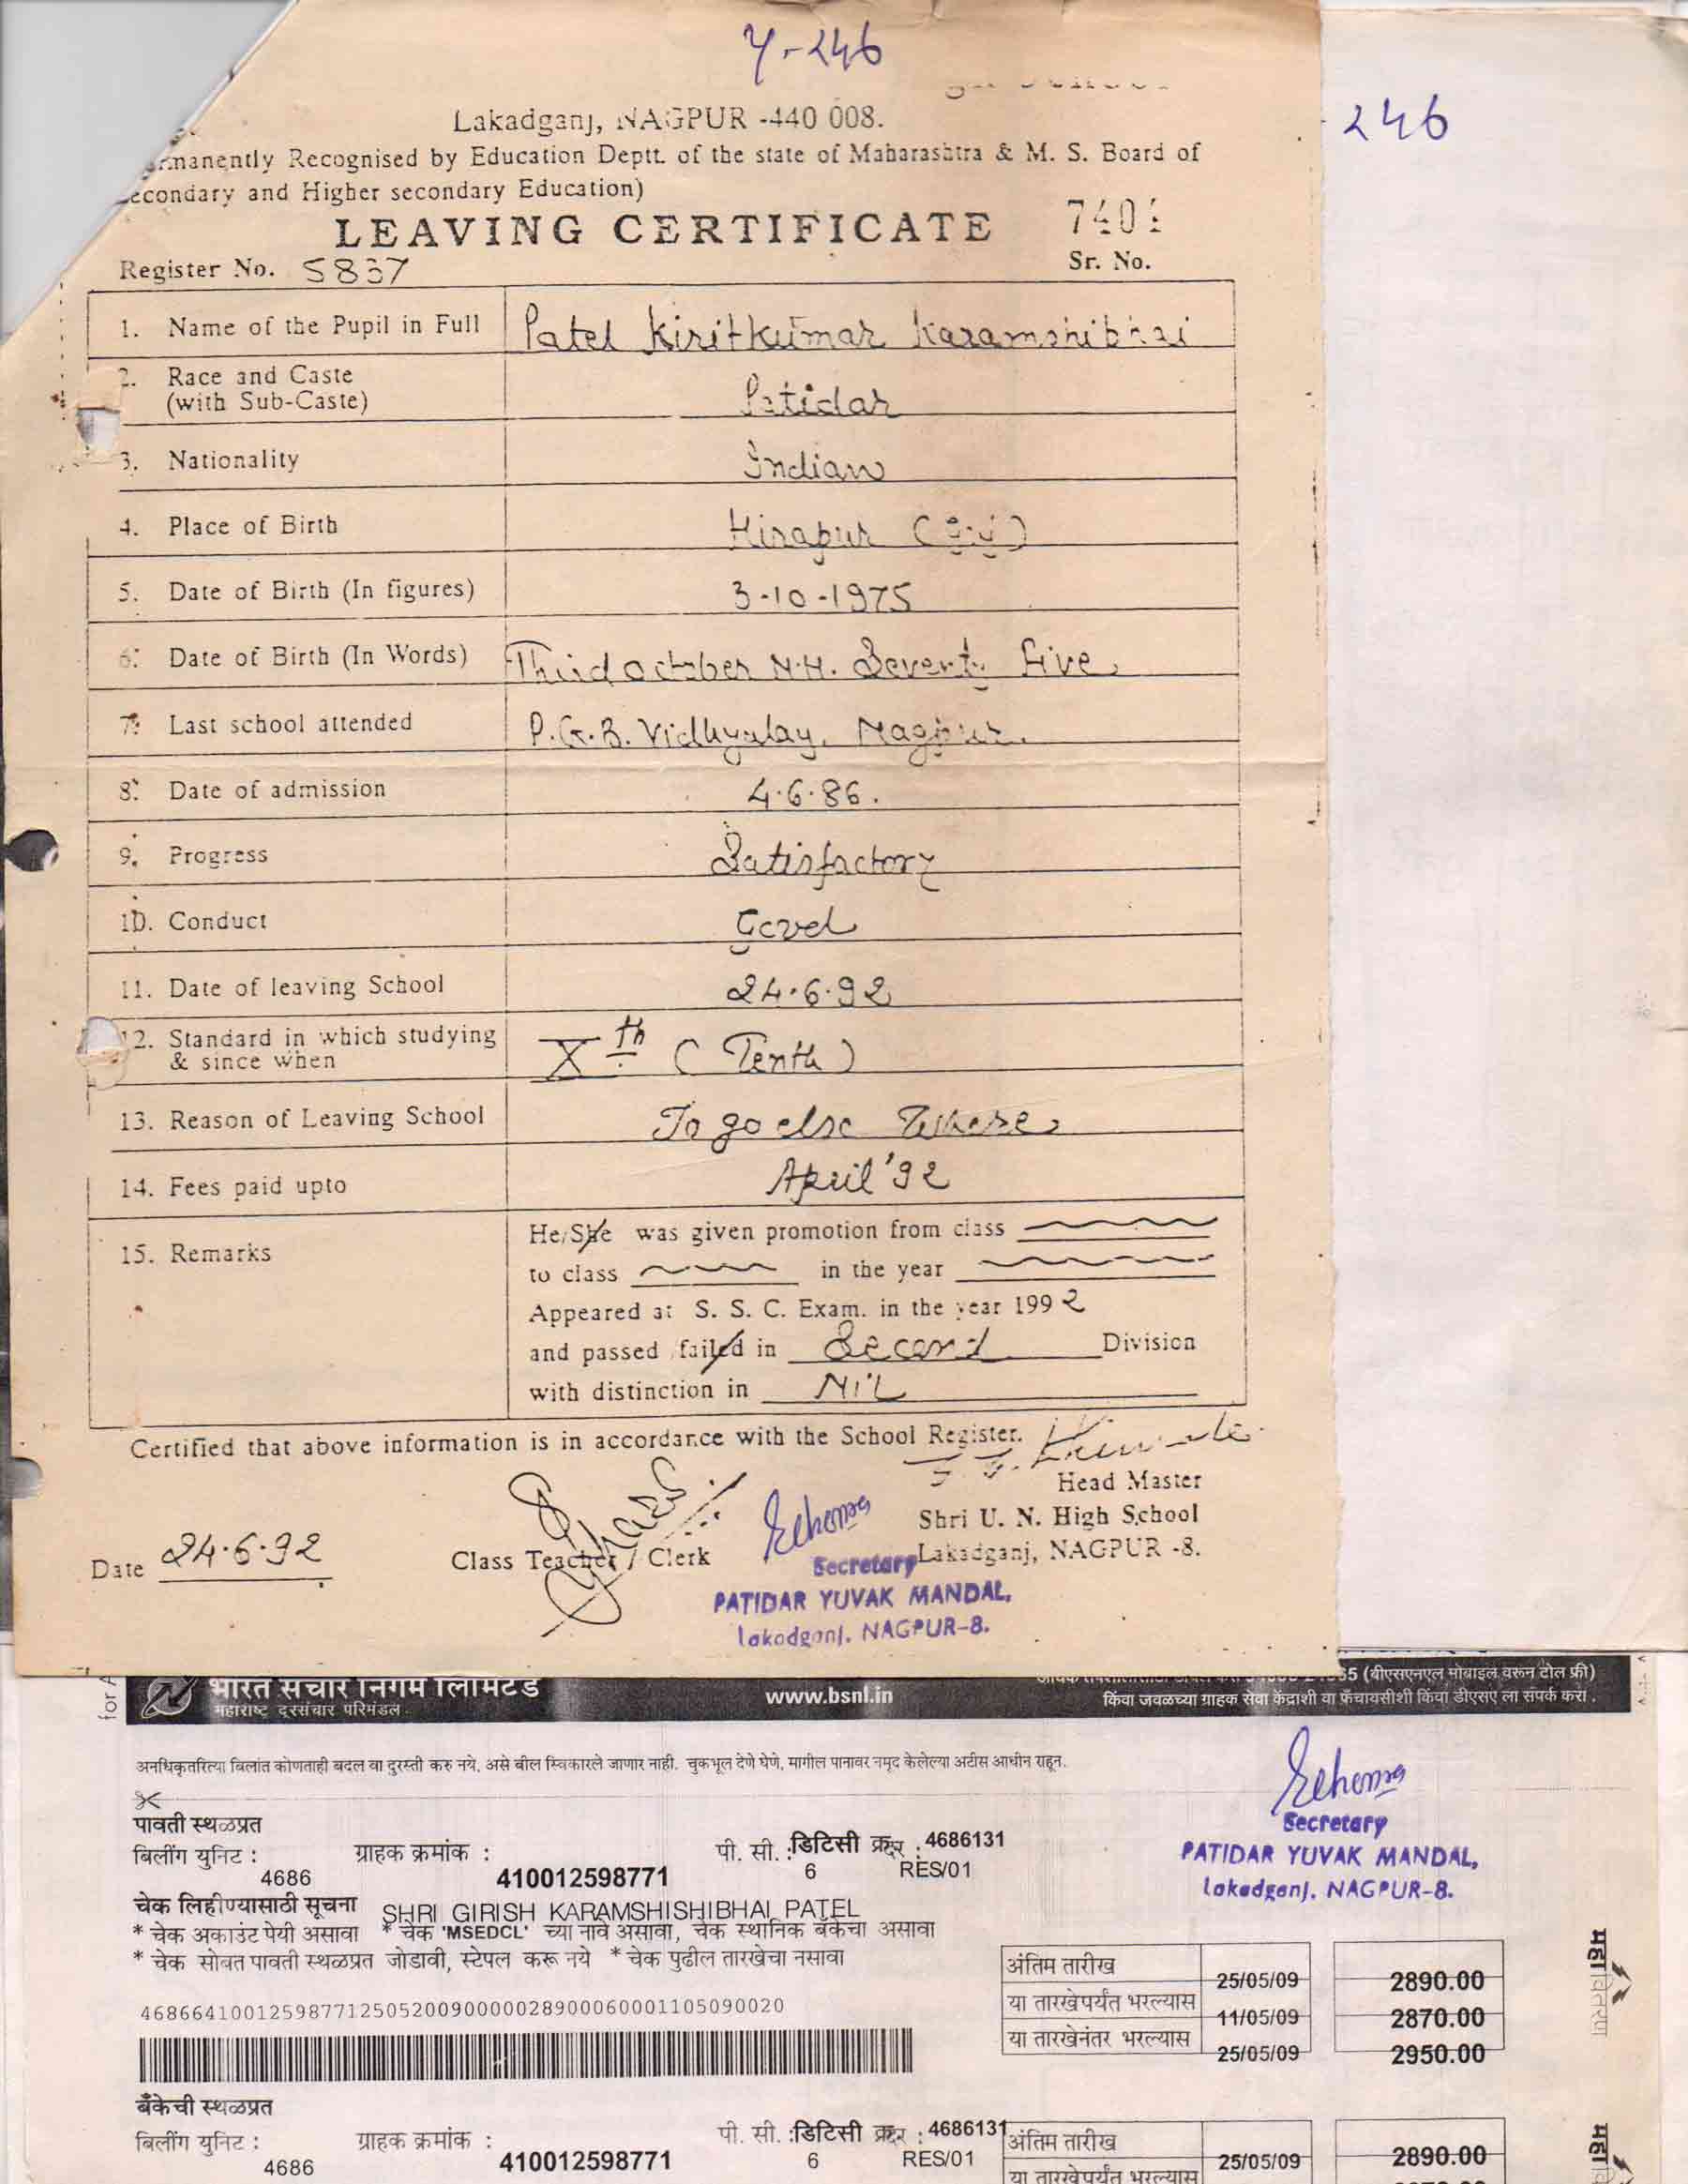 Y-246
246
Lakadganj, NAGPUR -440 008.
Recognised by Education Deptt. of the state of Maharashtra & M. S. Board of
and Higher secondary Education)
LEAVING CERTIFICATE
Sr. No.
Register No. 5837
1. Name of the Pupil in Full Patel Kiritkumar Karamshibhai
2. Race and Caste
(with Sub-Caste) Patidar
3. Nationality Indian
4. Place of Birth Hirapur
5. Date of Birth (In figures) 3-10-1975
6. Date of Birth (In Words) Third october N.H. Seventy Five
7. Last school attended P.G.B. Vidhyalay, Nagpur.
8. Date of admission 4.6.86.
9. Progress Satisfactory
10. Conduct Good
11. Date of leaving School 24.6.92
12. Standard in which studying
& since when Xth (Tenth)
13. Reason of Leaving School To go else Where
14. Fees paid upto April '92
15. Remarks
He/She was given promotion from class
to class in the year
Appeared at S. S. C. Exam. in the year 1992
and passed failed in Second Division
with distinction in NIL
Certified that above information is in accordance with the School Register.
Head Master
Shri U. N. High School
Lakadganj, NAGPUR -8.
Date 24.6.92
Class Teacher / Clerk
Secretary
PATIDAR YUVAK MANDAL,
Lakadganj, NAGPUR-8.
for A
भारत संचार निगम लिमिटेड
महाराष्ट्र दूरसंचार परिमंडल
www.bsnl.in
(बीएसएनएल मोबाइल वरून टोल फ्री)
किंवा जवळच्या ग्राहक सेवा केंद्राशी वा फ्रँचायसीशी किंवा डीएसए ला संपर्क करा .
अनधिकृतरित्या बिलांत कोणताही बदल वा दुरस्ती करु नये, असे बील स्विकारले जाणार नाही. चुकभूल देणे घेणे, मागील पानावर नमूद केलेल्या अटीस आधीन राहून.
Secretary
PATIDAR YUVAK MANDAL,
Lakadganj, NAGPUR-8.
पावती स्थळप्रत
बिलींग युनिट : 4686
ग्राहक क्रमांक : 410012598771
पी. सी. : 6
डिटिसी 4686131
RES/01
चेक लिहीण्यासाठी सूचना
SHRI GIRISH KARAMSHISHIBHAI PATEL
* चेक अकाउंट पेयी असावा * चेक 'MSEDCL' च्या नावे असावा, चेक स्थानिक बँकेचा असावा
* चेक सोबत पावती स्थळप्रत जोडावी, स्टेपल करू नये * चेक पुढील तारखेचा नसावा
अंतिम तारीख 25/05/09 2890.00
या तारखेपर्यंत भरल्यास 11/05/09 2870.00
या तारखेनंतर भरल्यास 25/05/09 2950.00
महावितरण
बँकेची स्थळप्रत
बिलींग युनिट : 4686
ग्राहक क्रमांक : 410012598771
पी. सी. : 6
डिटिसी 4686131
RES/01
अंतिम तारीख 25/05/09 2890.00
या तारखेपर्यंत भरल्यास
महा